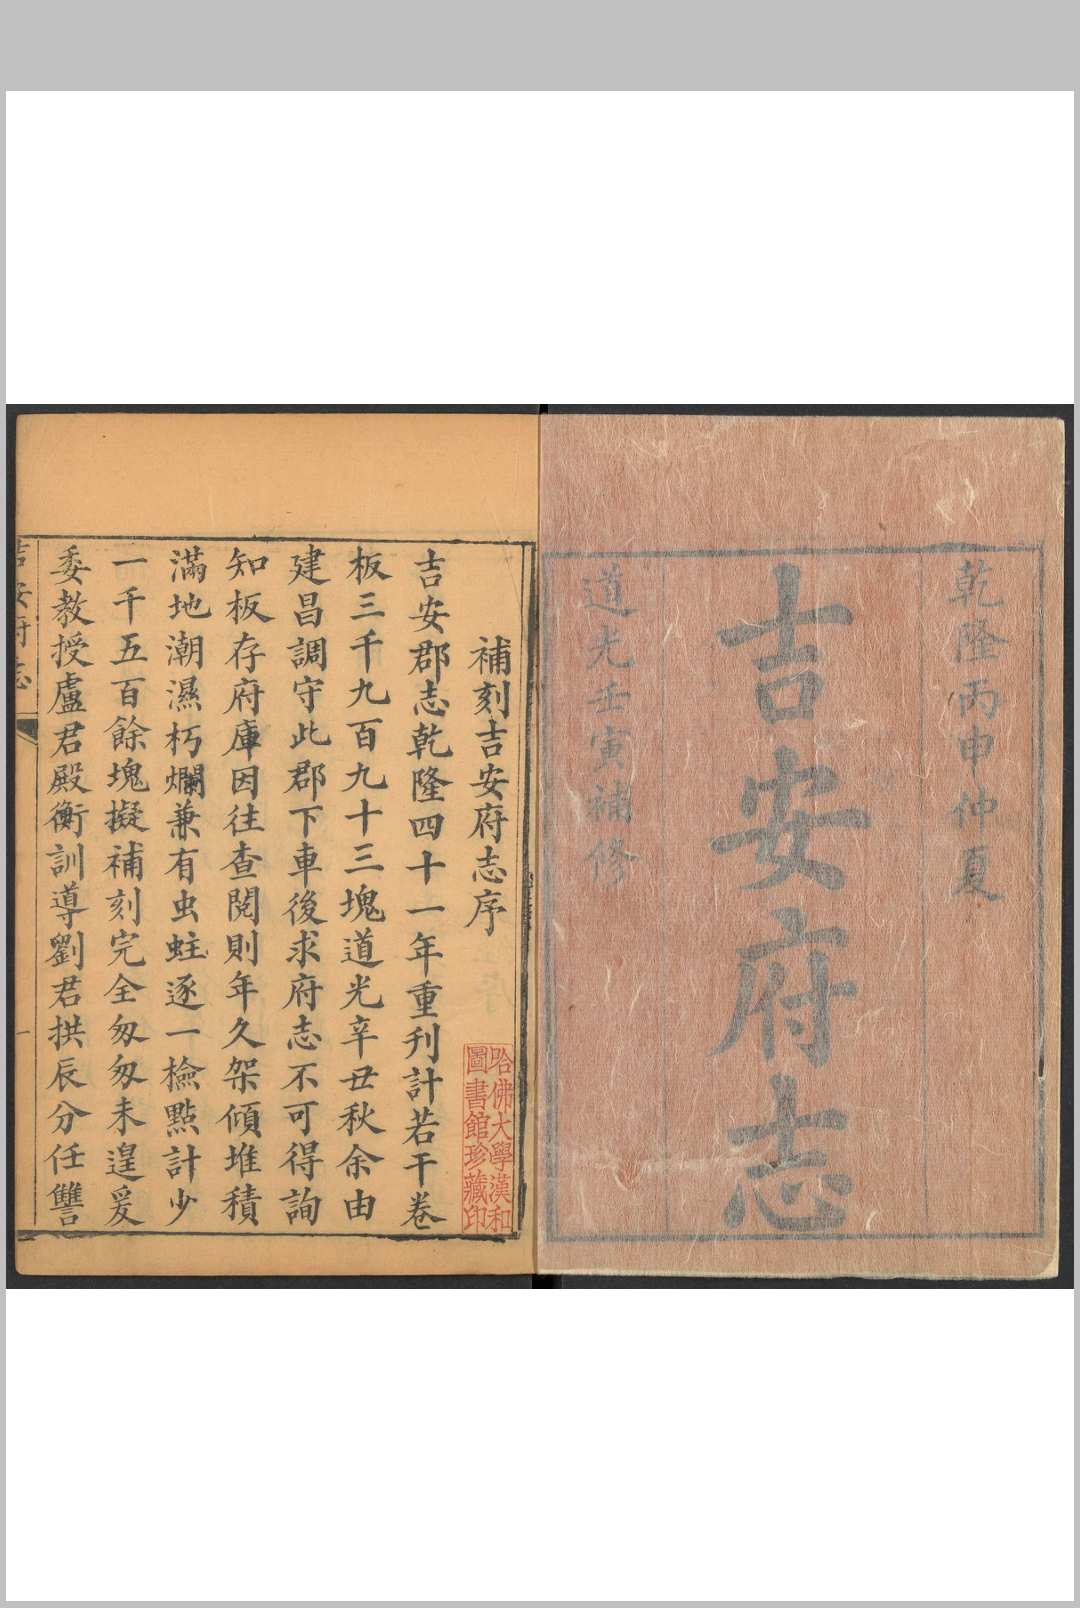 乾隆丙申仲夏
吉安府志
道光壬寅補修
補刻吉安府志序
吉安郡志乾隆四十一年重刊計若干卷
板三千九百九十三塊道光辛丑秋余由
建昌調守此郡下車後求府志不可得詢
知板存府庫因往查閱則年久架傾堆積
滿地潮濕朽爛兼有虫蛀逐一檢點計少
一千五百餘塊擬補刻完全匆匆未遑爰
委教授盧君殿衡訓導劉君拱辰分任讐
吉安府志
一
哈佛大學漢和
圖書館珍藏印